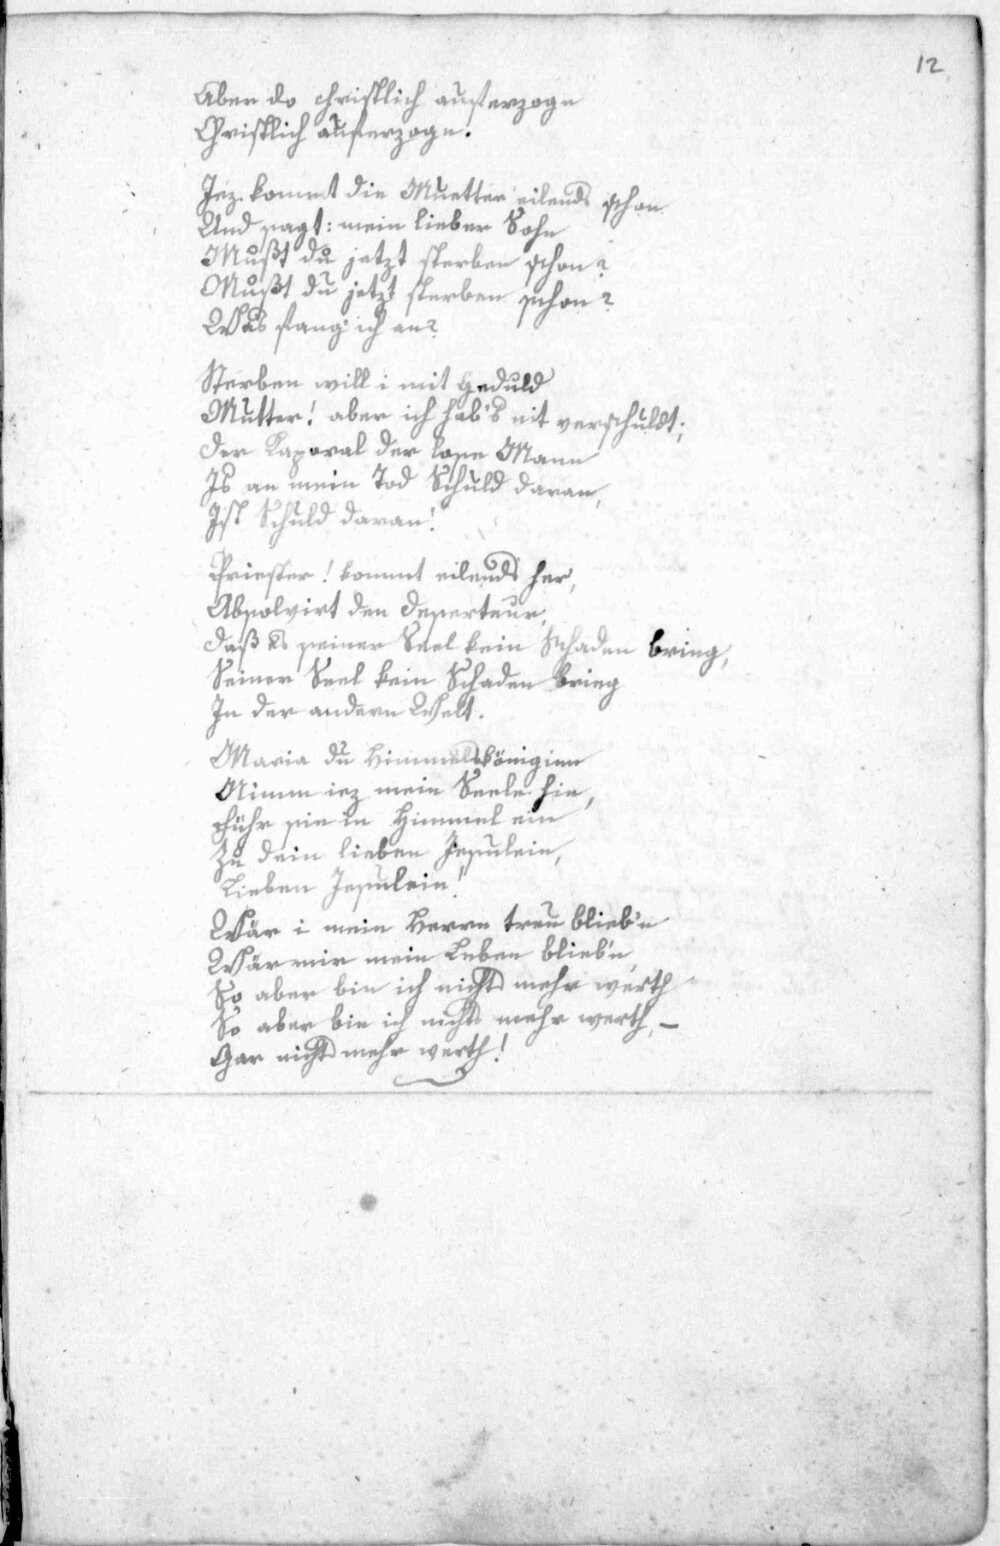 12
Aber do christlich auferzoge
Christlich auferzoge.
Jez kommt die Muetter eilends schon
Und sagt: mein lieber Sohn
Mußt du jetzt sterben schon?
Mußt du jetzt sterben schon?
Was fang' ich an?
Sterben will i mit Geduld
Mutter! aber ich hab's nit verschuldt;
Der Kaporal der lose Mann
Is an mein Tod Schuld daran,
Ist Schuld daran!
Priester! kommt eilends her,
Absolvirt den Deserteur,
Daß es seiner Seel kein Schaden bring,
Seiner Seel kein Schaden bring
In der andern Welt.
Maria du Himmelsköniginn
Nimm iez mein Seele hin,
Führ sie in Himmel ein
Zu dein lieben Jesulein,
Lieben Jesulein!
Wär i mein Herrn treu blieb'n
Wär mir mein Leben blieb'n
So aber bin ich nichts mehr werth
So aber bin ich nichts mehr werth, –
Gar nichts mehr werth!